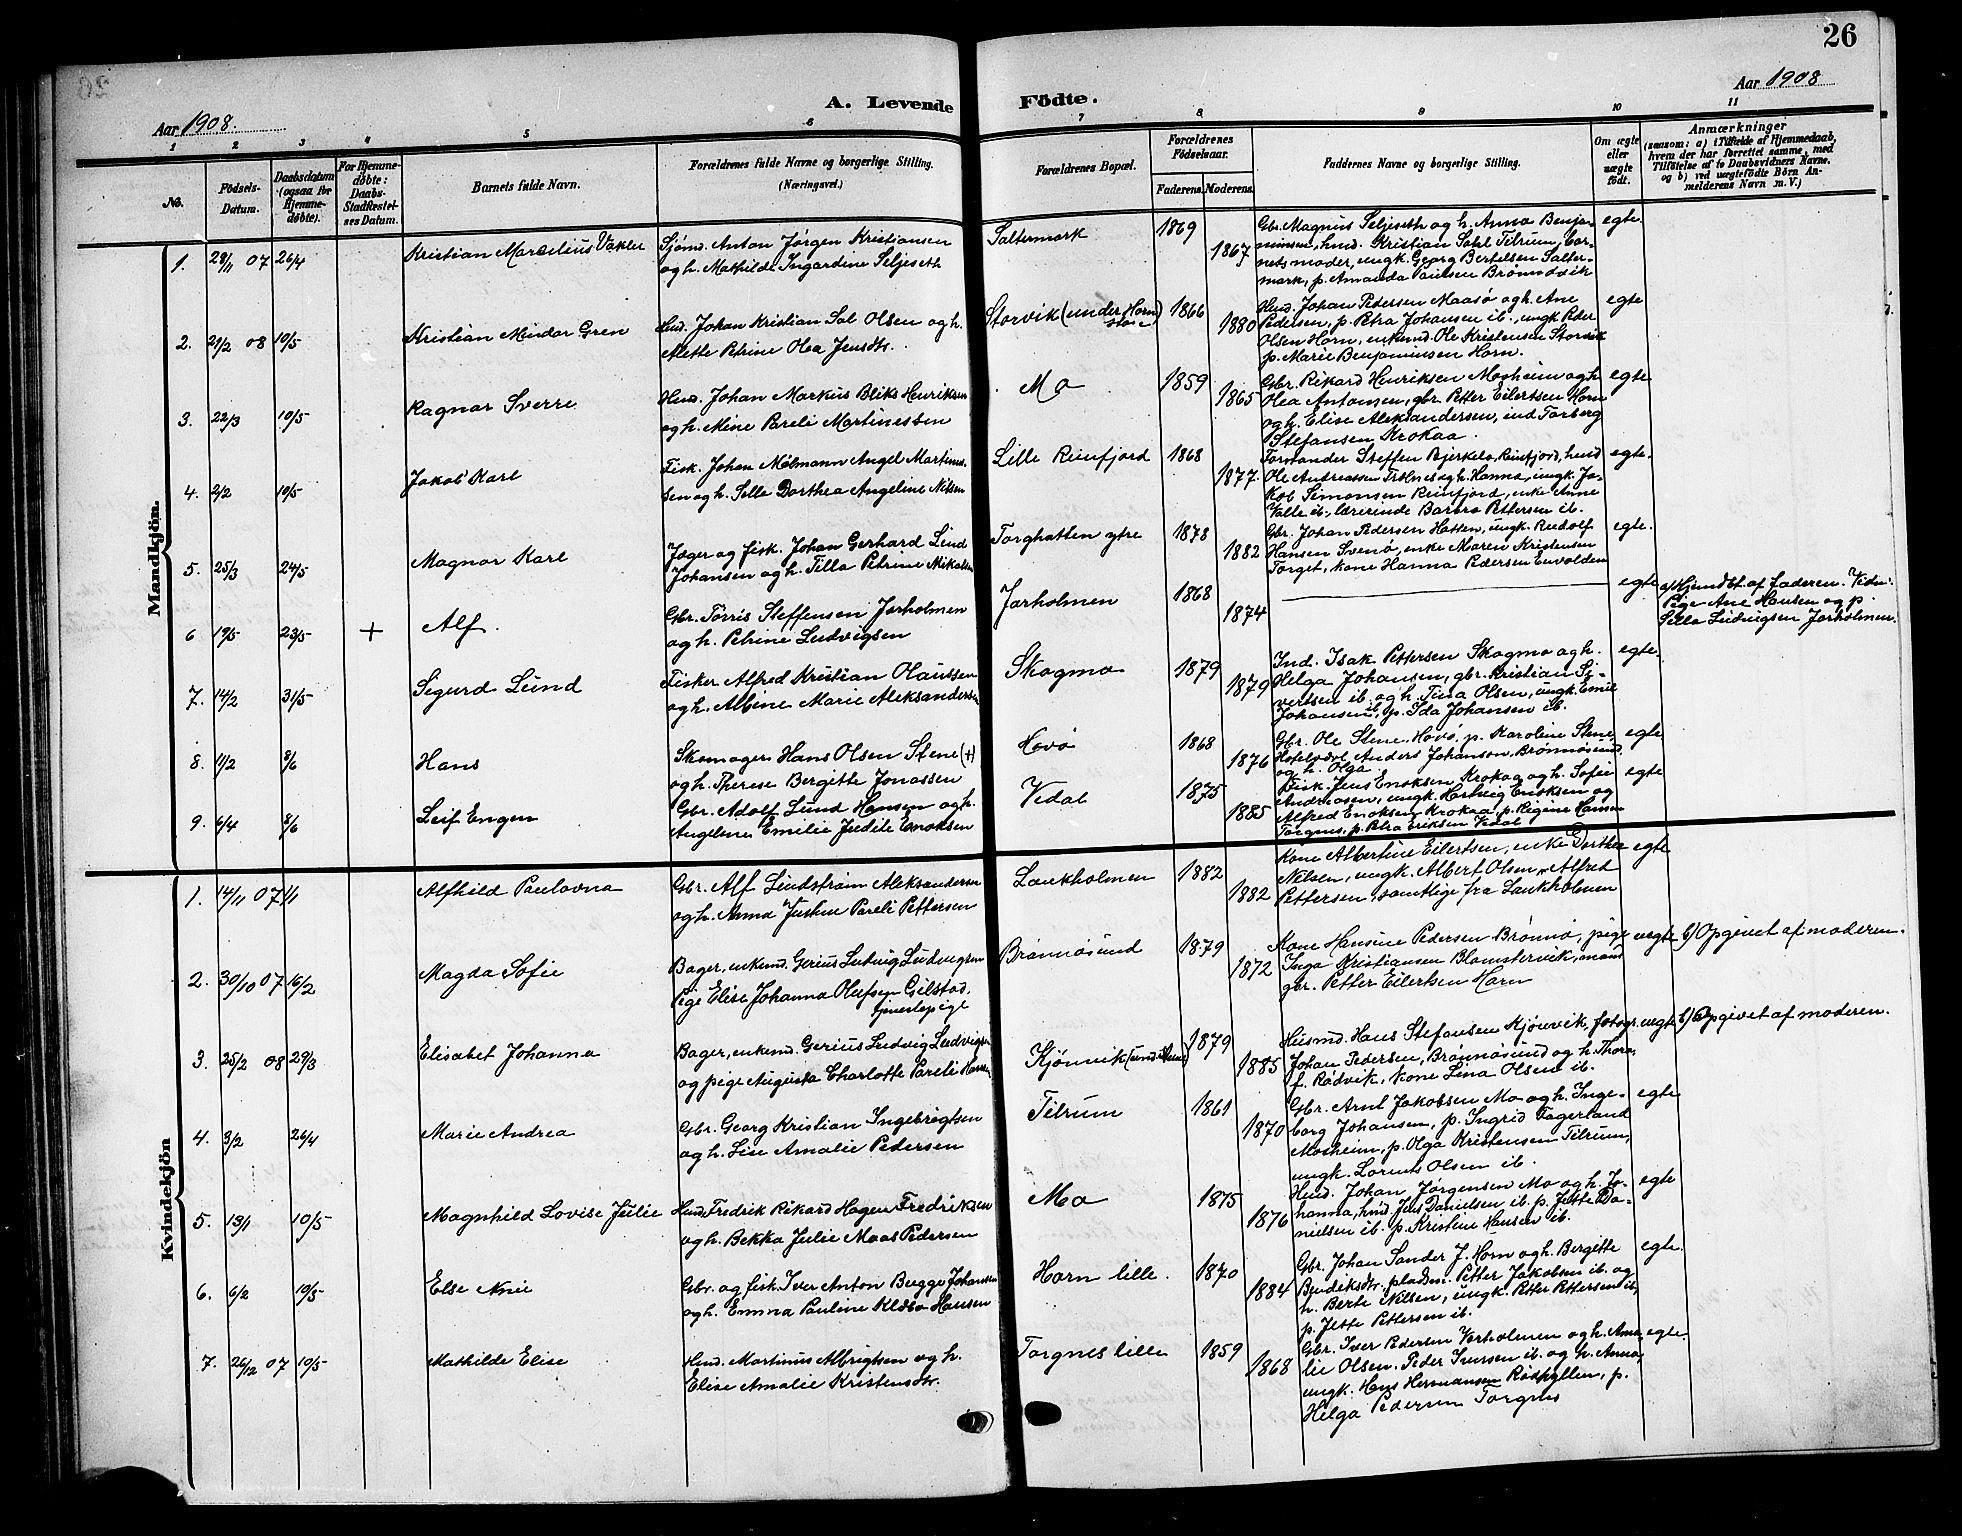 26
Aar 1908.
A. Levende Födte.
Aar 1908
1 2 3 4 5 6 7 8 9 10 11
No.
Födsels-Datum.
Daabsdatum (ogsaa for Hjemmedöbte).
For Hjemmedöbte: Daabs-Stadfæstelses Datum.
Barnets fulde Navn.
Forældrenes fulde Navne og borgerlige Stilling. (Næringsvei.)
Forældrenes Bopæl.
Forældrenes Födselsaar.
Faderens. Moderens.
Faddernes Navne og borgerlige Stilling.
Om ægte eller uægte födt.
Anmærkninger
(saasom: a) i Tilfælde af Hjemmedaab, hvem der har forrettet samme, med Tilföielse af to Daabsvidners Navne, og b) ved uægtefödte Börn Anmelderens Navn m. V.)
Mandkjön.
1. 29/11 07 26/4 Kristian Marcelius Vakler
Sjömd. Anton Jörgen Kristiansen
og h. Mathilde Ingardine Seljeseth
Saltermark 1869 1867
Gbr. Magnus Seljeseth og h. Anna Benja-
minsen, hmd. Kristian Tilrum, bar-
nets moder, ungk. Georg Bertelsen Salter-
mark, p. Amanda Paulsen Brönnövik
egte.
2. 21/2 08 10/5 Kristian Mindor Gren
Hmd. Johan Kristian Sol Olsen og h.
Alette Petrine Olea Jensdtr.
Storvik (under Horn) 1866 1880
Hmd. Johan Pedersen Maasö og h. Ane
Pedersen, p. Petra Johansen ib., ungk. Peder
Olsen Horn, enkemd. Ole Kristensen Storvik
p. Marie Benjaminsen Horn.
egte
3. 22/3 10/5 Ragnar Sverre
Hmd. Johan Markus Bliks Henriksen
og h. Mine Pareli Martinessen
Mo 1859 1865
Gbr. Rikard Henriksen Mosheim og h.
Olea Antonsen, gbr. Petter Eilertsen Horn
og h. Elise Aleksandersen, ind. Torberg
Stefansen Krokaa.
egte
4. 2/2 10/5 Jakob Karl
Fisk. Johan Mölmann Angel Martinus-
sen og h. Sella Dorthea Angeline Nilsen
Lille Reinfjord 1868 1877.
Formander Steffen Bjerkelo, Reinfjord, hmd
Ole Andreassen Trölnes og h. Hanna, ungk. Ja-
kob Simonsen Reinfjord, enke Anne
Valle ib., lærerinde Barbro Pettersen ib.
egte.
5. 25/3 24/5 Magnar Karl
Jæger og fisk. Johan Gerhard Lind
Johansen og h. Tilla Petrine Mikalsen
Torghatten ytre 1878 1882
Gbr. Johan Pedersen Hatten, ungk. Rudolf
Hansen Svenö, enke Maren Kristensen
Torget, kone Hanna Pedersen Envolden
egte.
6 19/5 23/5 + Alf.
Gbr. Torris Steffensen Jorholmen
og h. Petrine Ludvigsen
Jorholmen 1868 1874
egte
a) Hjemdbt. af faderen. Vidn.:
Pige Ane Hansen og p.
Sella Ludvigsen Jorholmen.
7. 14/2 31/5 Sigurd Lund
Fisker Alfred Kristian Olaussen
og h. Albine Marie Aleksandersen
Skogmo 1879 1879
Ind. Isak Pettersen Skogmo og h.
Helga Johansen, gbr. Kristian Si-
vertsen ib. og h. Tina Olsen, ungk. Emil
Johansen ib., p. Ida Johansen ib.
egte.
8. 11/2 8/6 Hans
Skomager Hans Olsen Stene (+)
og h. Therese Bergitte Jonassen
Hovö 1868 1876
Gbr. Ole Stene, Hovö, p. Karoline Stene,
Hotelvært Anders Johanson, Brönnösund
og h. Olga
egte
9. 6/4 8/6 Leif Engen
Gbr. Adolf Lund Hansen og h.
Angelene Emilie Judite Enoksen
Vedal 1875 1885
Fisk. Jens Enoksen Krokaa og h. Sofie
Andreasen, ungk. Hartvig Enoksen og
Alfred Enoksen Krokaa, p. Regine Hansen
Torgnes, p. Petra Eriksen Vedal
egte
Kvindekjön
1. 14/11 07 1/1 Alfhild Paulovna
Gbr. Alf Lindstrøm Aleksandersen
og h. Anna Justine Pareli Pettersen
Laukholmen 1882 1882
Kone Albertine Eilertsen, enke Dorthea
Nilsen, ungk. Albert Olsen, Alfred
Pettersen, samtlige fra Laukholmen
egte
2. 30/10 07 16/2 Magda Sofie
Bager, enkemd. Gerius Ludvig Ludvigsen
Pige Elise Johanna Olufsen Gilstad,
tjenestepige
Brönnösund 1879 1872
Kone Hansine Pedersen Brönnö, pige
Inga Kristiansen Blomstervik,
gbr. Petter Eilertsen Horn
uegte b) Opgivet af moderen.
3. 25/2 08 29/3 Elisabet Johanna
Bager, enkemd. Gerius Ludvig Ludvigsen
og pige Augusta Charlotte Pareli Hansen
Kjönvik (und. Horn) 1879 1885
Husmd. Hans Stefansen Kjönvik, fotogr.
Johan Pedersen, Brönnösund og h. Thora,
f. Rödvik, kone Lina Olsen ib.
uegte b) Opgivet af moderen.
4. 3/2 26/4 Marie Andrea
Gbr. Georg Kristian Ingebrigtsen
og h. Lise Amalie Pedersen
Tilrum 1861 1870
Gbr. Arnt Jakobsen Mo og h. Inge-
borg Johansen, p. Ingrid Fagerland
Mosheim, p. Olga Kristensen Tilrum,
ungk. Lorents Olsen ib.
egte
5. 13/1 10/5 Magnhild Lovise Julie
Hmd. Fredrik Rikard Hagen Fredriksen
og h. Bekka Julie Maas Pedersen
Mo 1875 1876
Hmd. Johan Jörgensen Mo og h. Jo-
hanna, hmd. Jens Danielsen ib. p. Jette Da-
nielsen ib. p. Kristine Hansen ib.
egte
6. 6/2 10/5 Else Anie
Gbr. og fisk. Iver Anton Bugge Johansen
og h. Emma Pauline Kldbo Hansen
Horn lille. 1870 1884
Gbr. Johan Sander J. Horn og h. Bergitte
Bendiksdtr. pladsm. Petter Jakobsen ib. og
h. Berte Nilsen, ungk. Petter Pettersen ib,
p. Jette Pettersen ib.
egte.
7. 26/2 07 10/5 Mathilde Elise
Hmd. Martinus Albrigtsen og h.
Elise Amalie Kristensdtr.
Torgnes lille 1859 1868
Gbr. Iver Pedersen Vorholmen og h. Ama-
lie Olsen. Peder Iversen ib. og h. Anna,
ungk. Hans Hermansen Rödhyllen, p.
Helga Pedersen Torgnes
egte.